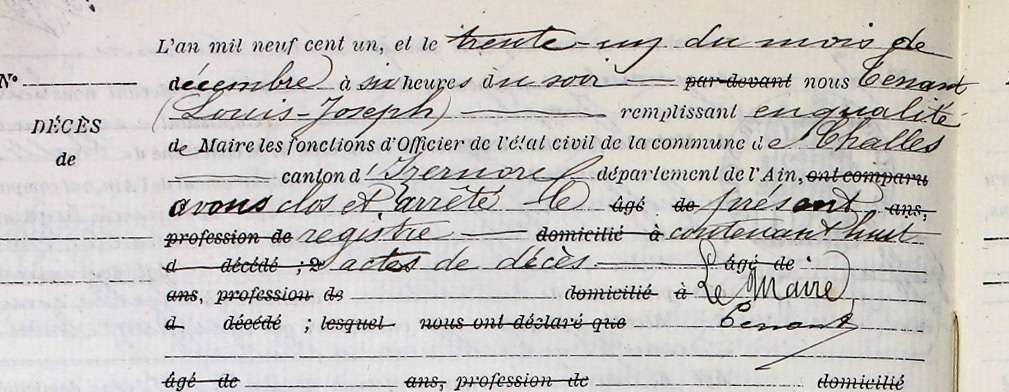 L'an mil neuf cent un, et le trente-un du mois de
N° décembre à six heures du soir par-devant nous Tenant
(Louis-Joseph) remplissant en qualité
DÉCÈS
de Maire les fonctions d'Officier de l'état civil de la commune de Challes
de
canton d'Izernore département de l'Ain, ont comparu
avons clos et arrêté le âgé de présent ans,
profession de registre domicilié à contenant huit
d décédé ; 2° actes de décès. âgé de
ans, profession de domicilié à Le Maire,
d décédé ; lesquel nous ont déclaré que Tenant
âgé de ans, profession de domicilié